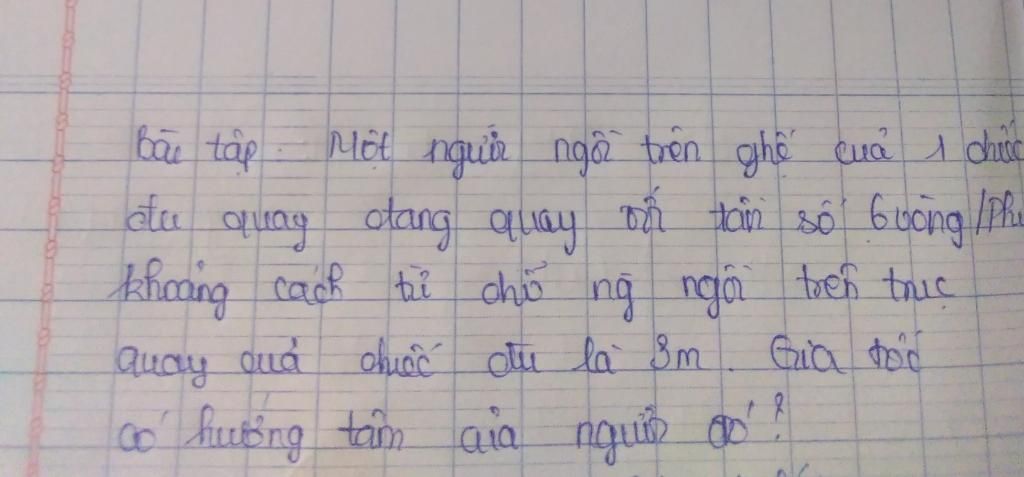 Bài tập. Một người ngồi trên ghế của 1 chiếc
đu quay đang quay với tần số 6 vòng/Phú
khoảng cách từ chỗ ng ngồi trên trục
quay quả chiếc đu là 3m. Gia tốc
có hướng tâm của người đó?